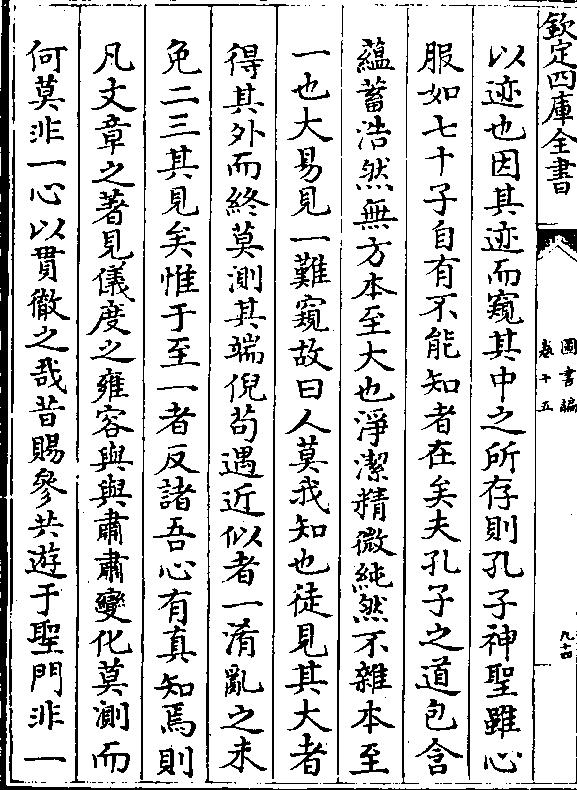 欽定四庫全書
圖書編
卷十五
九十四
以迹也因其迹而窺其中之所存則孔子神聖雖心
服如七十子自有不能知者在矣夫孔子之道包含
蘊蓄浩然無方本至大也淨潔精微純然不雜本至
一也大易見一難窺故曰人莫我知也徒見其大者
得其外而終莫測其端倪苟遇近似者一淆亂之未
免二三其見矣惟于至一者反諸吾心有真知焉則
凡文章之著見儀度之雍容與與肅肅變化莫測而
何莫非一心以貫徹之哉昔賜參共遊于聖門非一